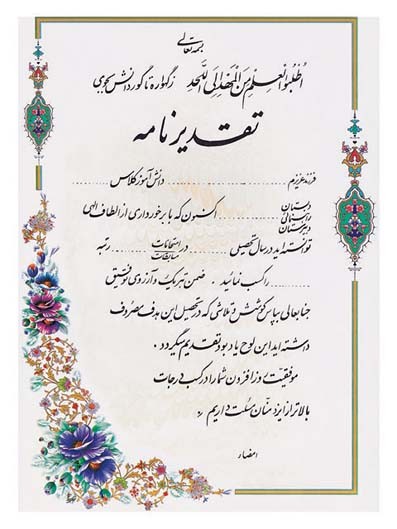 بسمه تعالی
اُطْلُبُوا الْعِلْمَ مِنَ الْمَهْدِ اِلَی اللَّحَدِ زگهواره تا گور دانش بجوی
تقدیرنامه
فرزند عزیزم .......... دانش آموز کلاس ..........
دبستان
راهنمائی
دبیرستان
.......... اکنون که با برخورداری از الطاف الهی
توانسته اید در سال تحصیلی .......... در امتحانات
مسابقات
.......... رتبه
.......... را کسب نمائید . ضمن تبریک و آرزوی توفیق
جنابعالی بپاس کوشش و تلاشی که در تحصیل این هدف مصروف
داشته اید این لوح یادبود تقدیم میگردد .
موفقیت روزافزون شما را در کسب درجات
بالاتر از ایزد منّان مسئلت داریم
امضاء